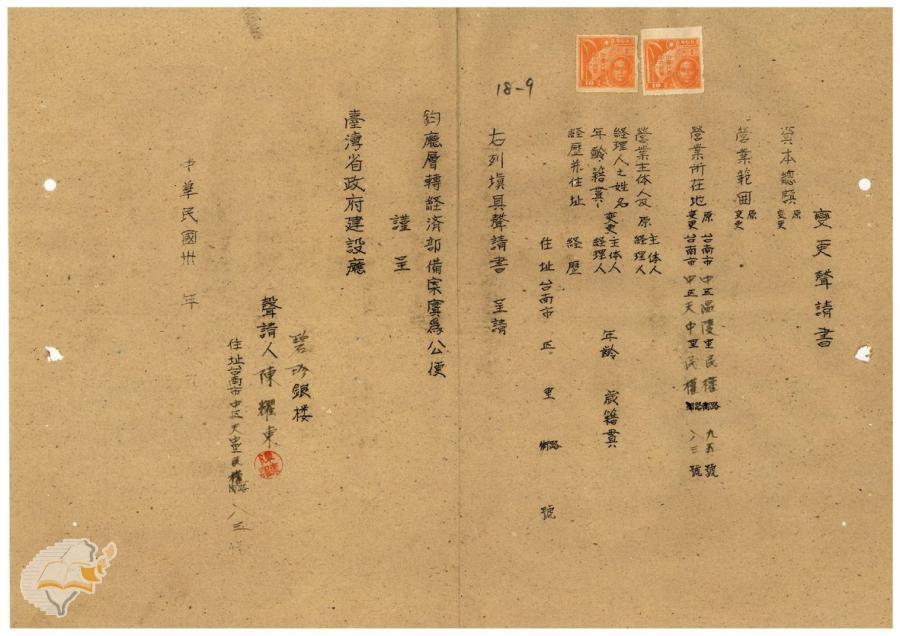 變更聲請書
資本總額 原 變更
營業範囲 原 變更
營業所在地 原 台南市中正區溫陵里民權路街九五號
變更 台南市中正區天中里民權路街八三號
營業主体人及
經理人之姓名
年齡籍貫
經歷并住址
原 主体人 經理人
變更 主体人 經理人 年齡 歲籍貫
經歷
住址台南市 區 里 路街 號
右列填具聲請書 呈請
鈞廳層轉經済部備案實為公便
謹呈
臺灣省政府建設廳
銀楼
聲請人陳耀東
住址台南市中區天中里民權路街八三號
中華民國卅 年
18-9